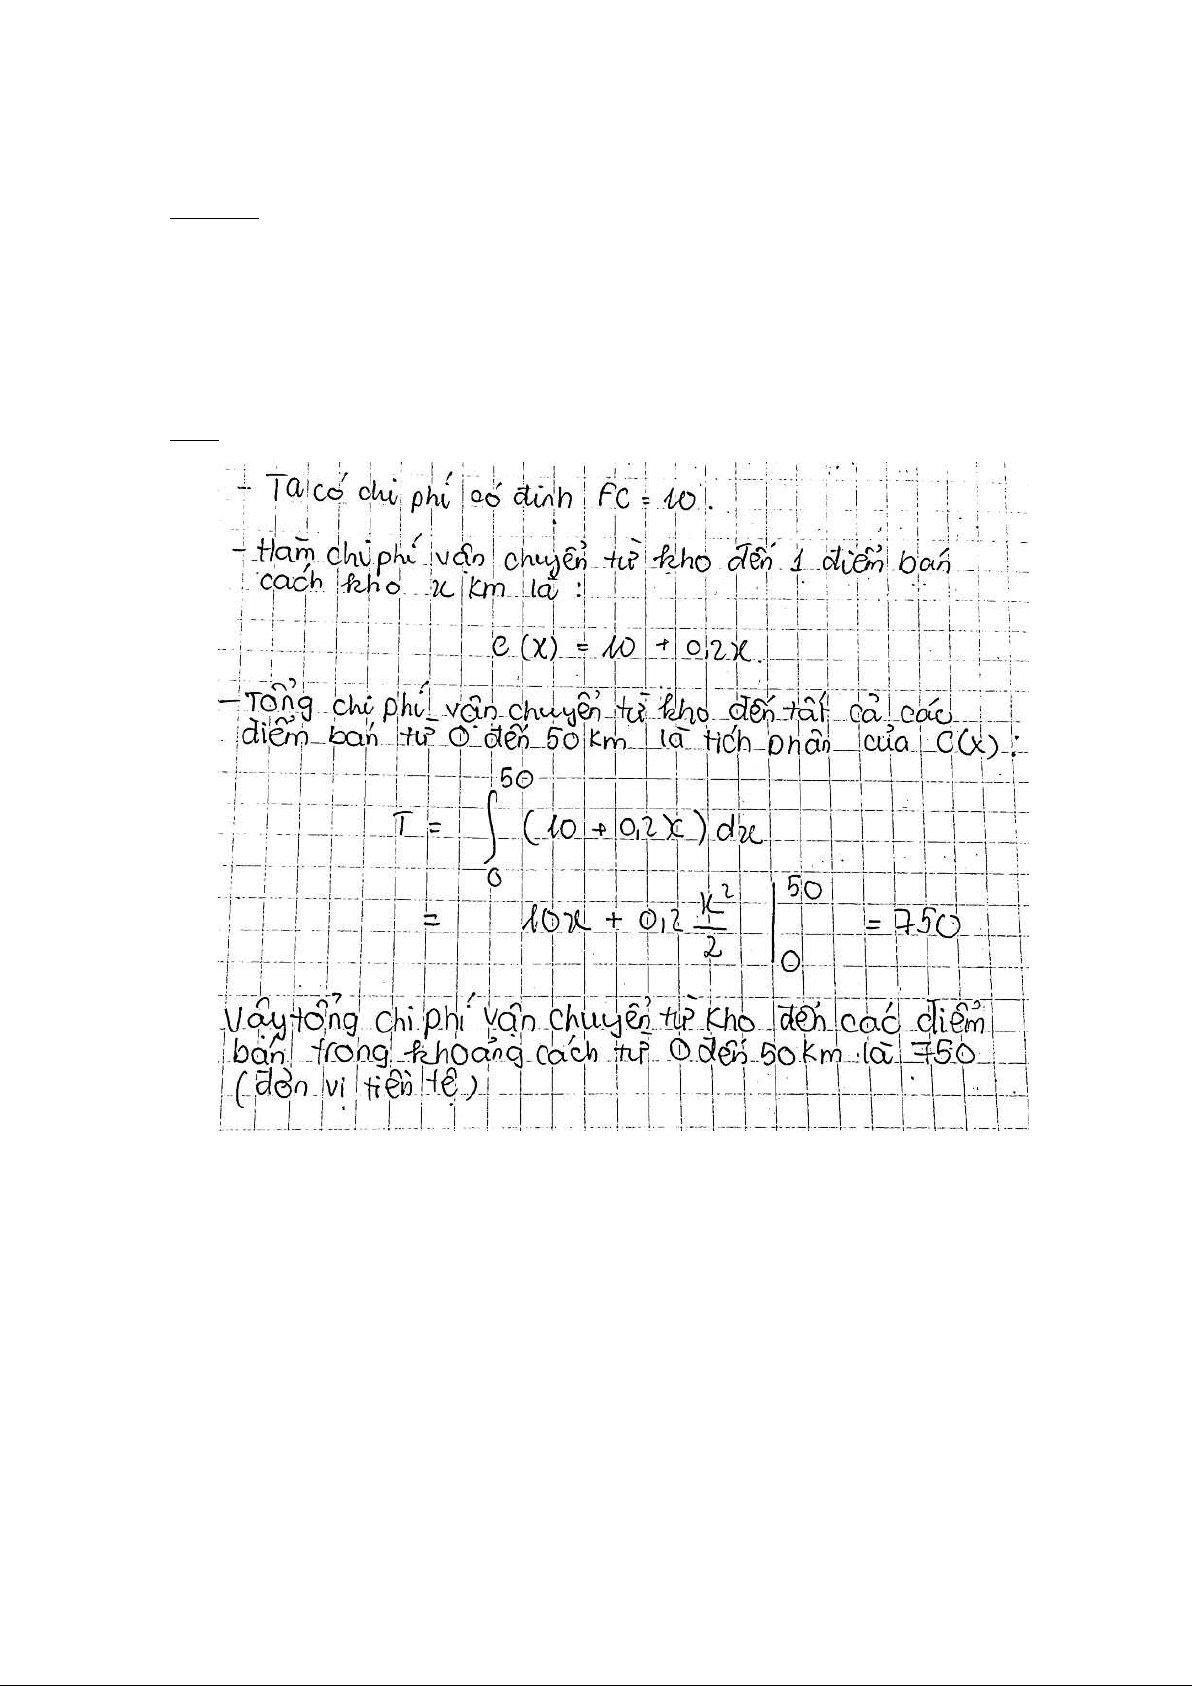 - Ta có chi phí cố định FC = 10.
- Hàm chi phí vận chuyển từ kho đến 1 điểm bán
cách kho x km là :
C(x) = 10 + 0,2x.
- Tổng chi phí vận chuyển từ kho đến tất cả các
điểm bán từ 0 đến 50 km là tích phân của C(x) :
50
T = ∫ (10 + 0,2x) dx
0
= 10x + 0,2 x²/2 |₀⁵⁰ = 750
Vậy tổng chi phí vận chuyển từ kho đến các điểm
bán trong khoảng cách từ 0 đến 50 km là 750
(đơn vị tiền tệ)